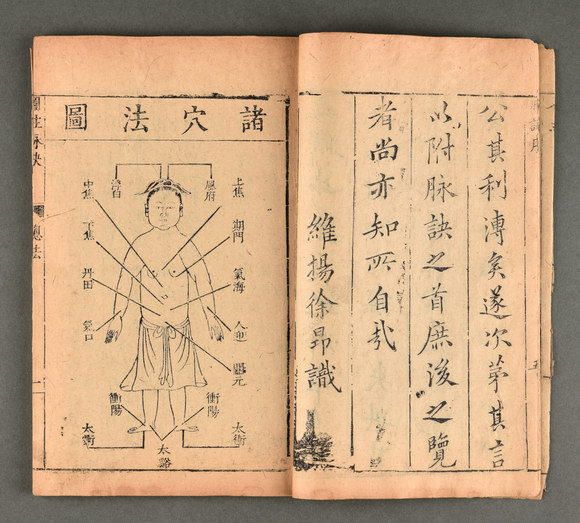 公其利溥矣遂次第其言
以附脉訣之首庶後之覽
者尚亦知所自哉
維揚徐昂識
諸穴法圖
上焦
風府
浮白
中焦
期門
下焦
氣海
丹田
人迎
氣口
關元
衝陽
衝陽
太衝
太衝
太谿
圖註脉訣
總法
一